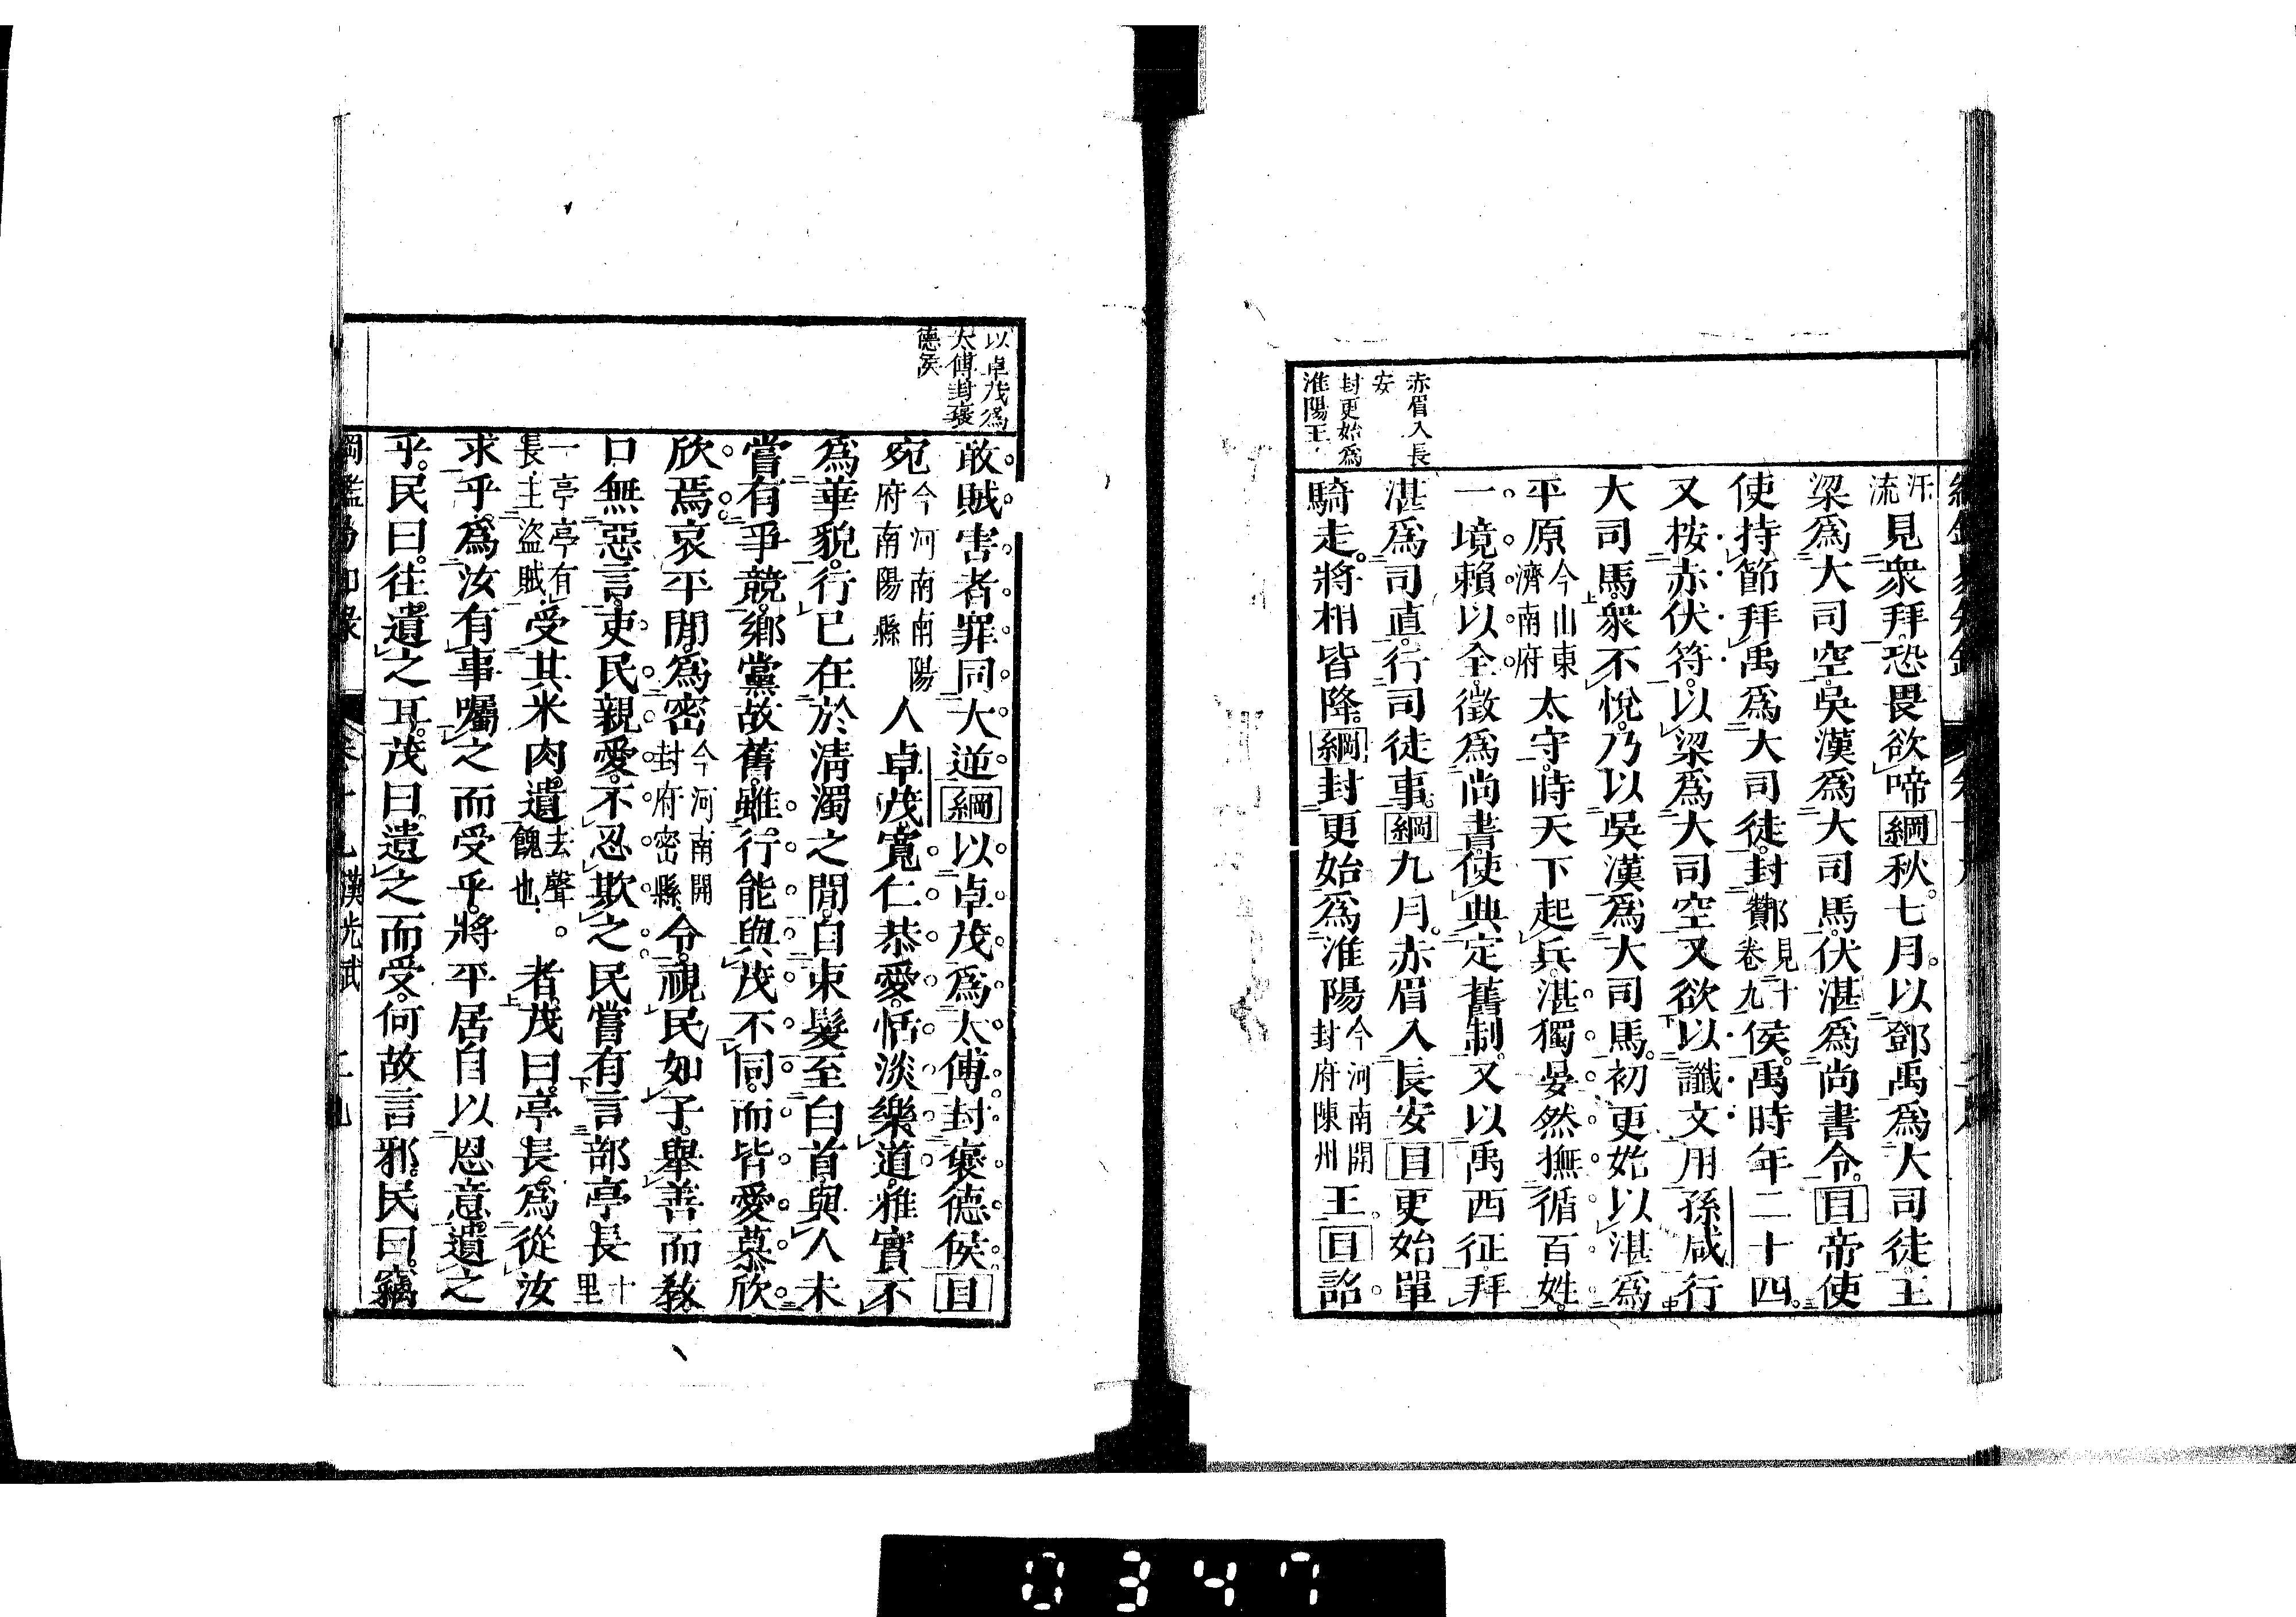 赤眉入長
安
封更始爲
淮陽王
汗流見衆拜。恐畏欲啼綱秋。七月。以鄧禹爲大司徒。王
梁爲大司空。吳漢爲大司馬。伏湛爲尚書令。目帝使
使持節拜禹爲大司徒。封酇見十九卷侯。禹時年二十四。
又按赤伏符。以梁爲大司空。又欲以讖文用孫咸行
大司馬。衆不悅。乃以吳漢爲大司馬。初更始以湛爲
平原今山東濟南府太守。時天下起兵。湛獨晏然撫循百姓。
一境賴以全。徵爲尚書。使典定舊制。又以禹西征。拜
湛爲司直。行司徒事。綱九月。赤眉入長安目更始單
騎走。將相皆降。綱封更始爲淮陽今河南開封府陳州王。目詔
以卓茂爲
太傅封褒
德侯
敢賊害者。罪同大逆綱以卓茂爲太傅封褒德侯目
宛今河南南陽府南陽縣人卓茂寬仁恭愛。恬淡樂道。雅實不
爲華貌。行已在於清濁之閒。自束髮至白首。與人未
嘗有爭競。鄉黨故舊。雖行能與茂不同。而皆愛慕欣
欣焉。哀平閒。爲密今河南開封府密縣令。視民如子。舉善而敎。
口無惡言。吏民親愛。不忍欺之民嘗有言部亭長十里
一亭亭有長主盜賊受其米肉遺去聲餽也者。茂曰。亭長。爲從汝
求乎。爲汝有事囑之而受乎。將平居自以恩意。遺之
乎。民曰。往遺之耳。茂曰。遺之而受。何故言邪。民曰。竊
綱鑑易知錄 卷十九 漢光武
0347